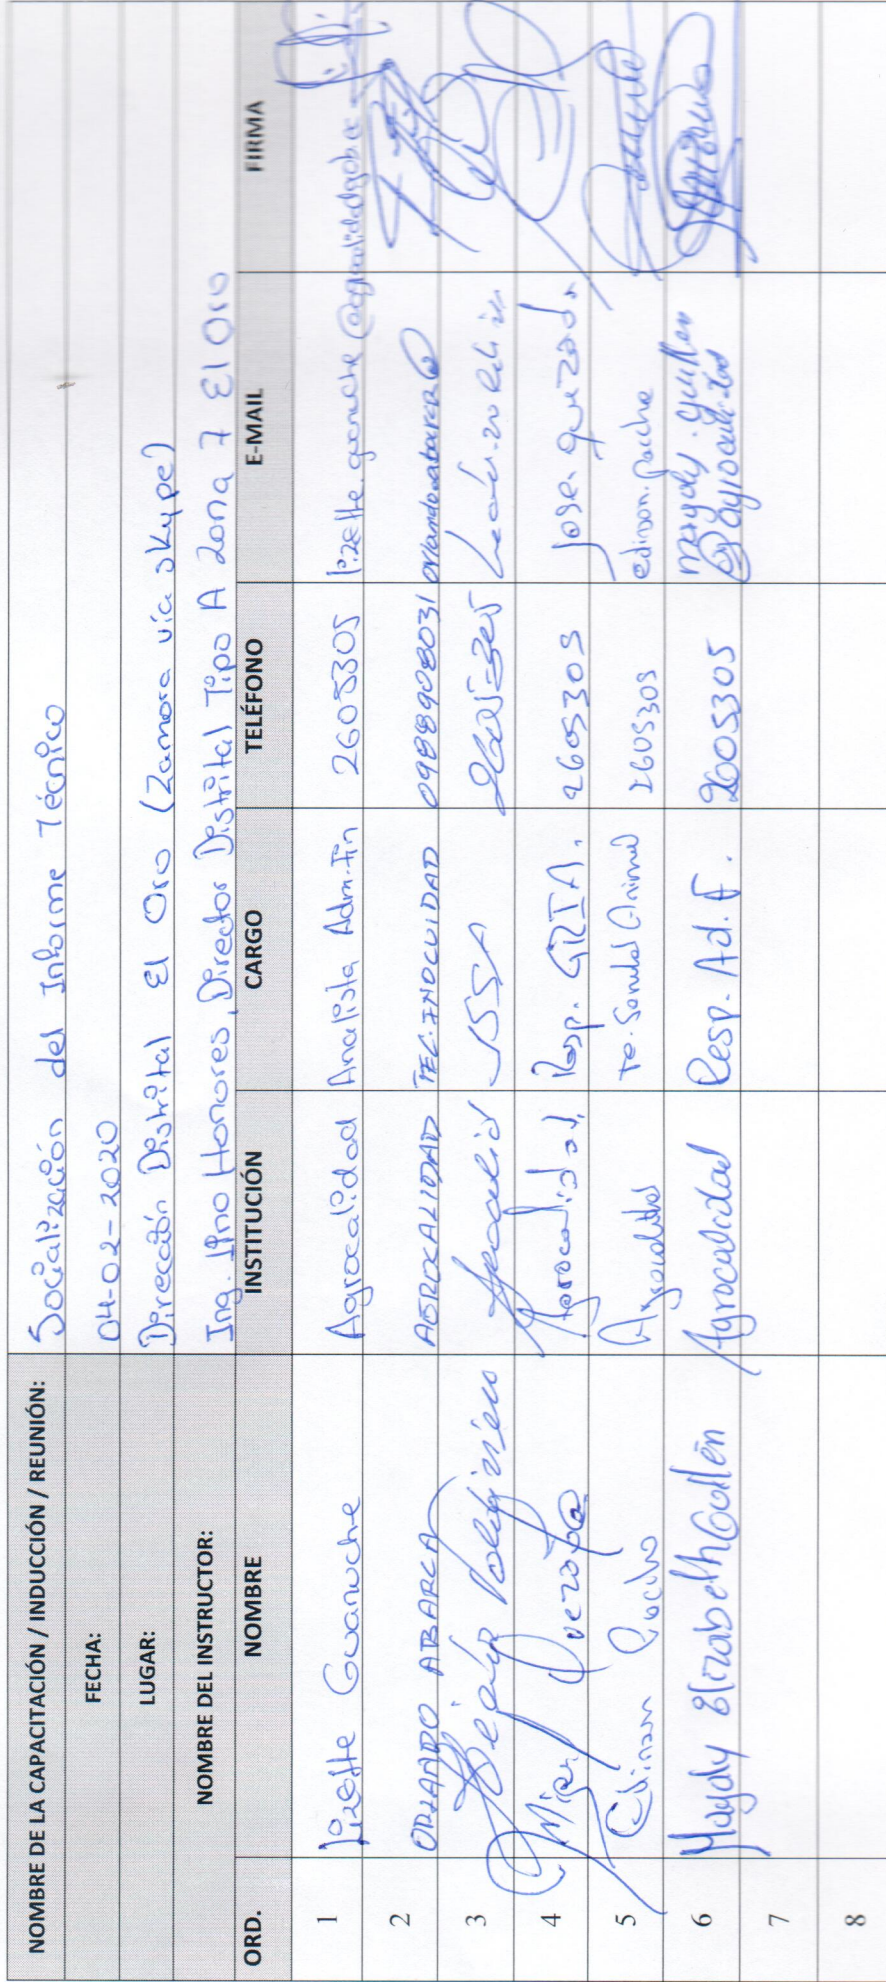 NOMBRE DE LA CAPACITACIÓN / INDUCCIÓN / REUNIÓN: Socialización del Informe Técnico
FECHA: 04-02-2020
LUGAR: Dirección Distrital El Oro (Zamora vía skype)
NOMBRE DEL INSTRUCTOR: Ing. Lino Honores, Director Distrital Tipo A Zona 7 El Oro
ORD. NOMBRE INSTITUCIÓN CARGO TELÉFONO E-MAIL FIRMA
1 Lizette Guanuche Agrocalidad Analista Adm-Fin 2605305 lizette.guanuche@
2 ORLANDO ABARCA AGROCALIDAD TEC. INOCUIDAD 0988908031 orlando.abarca@
3 Agrocalid
4 Quezada Agrocalidad, Resp. 2605305 jose.quezada
5 Edison Agrocalidad Sanidad Animal 2605305
6 Magaly Elizabeth Guillén Agrocalidad Resp. Ad. F. 2605305 magaly.guillen
7
8